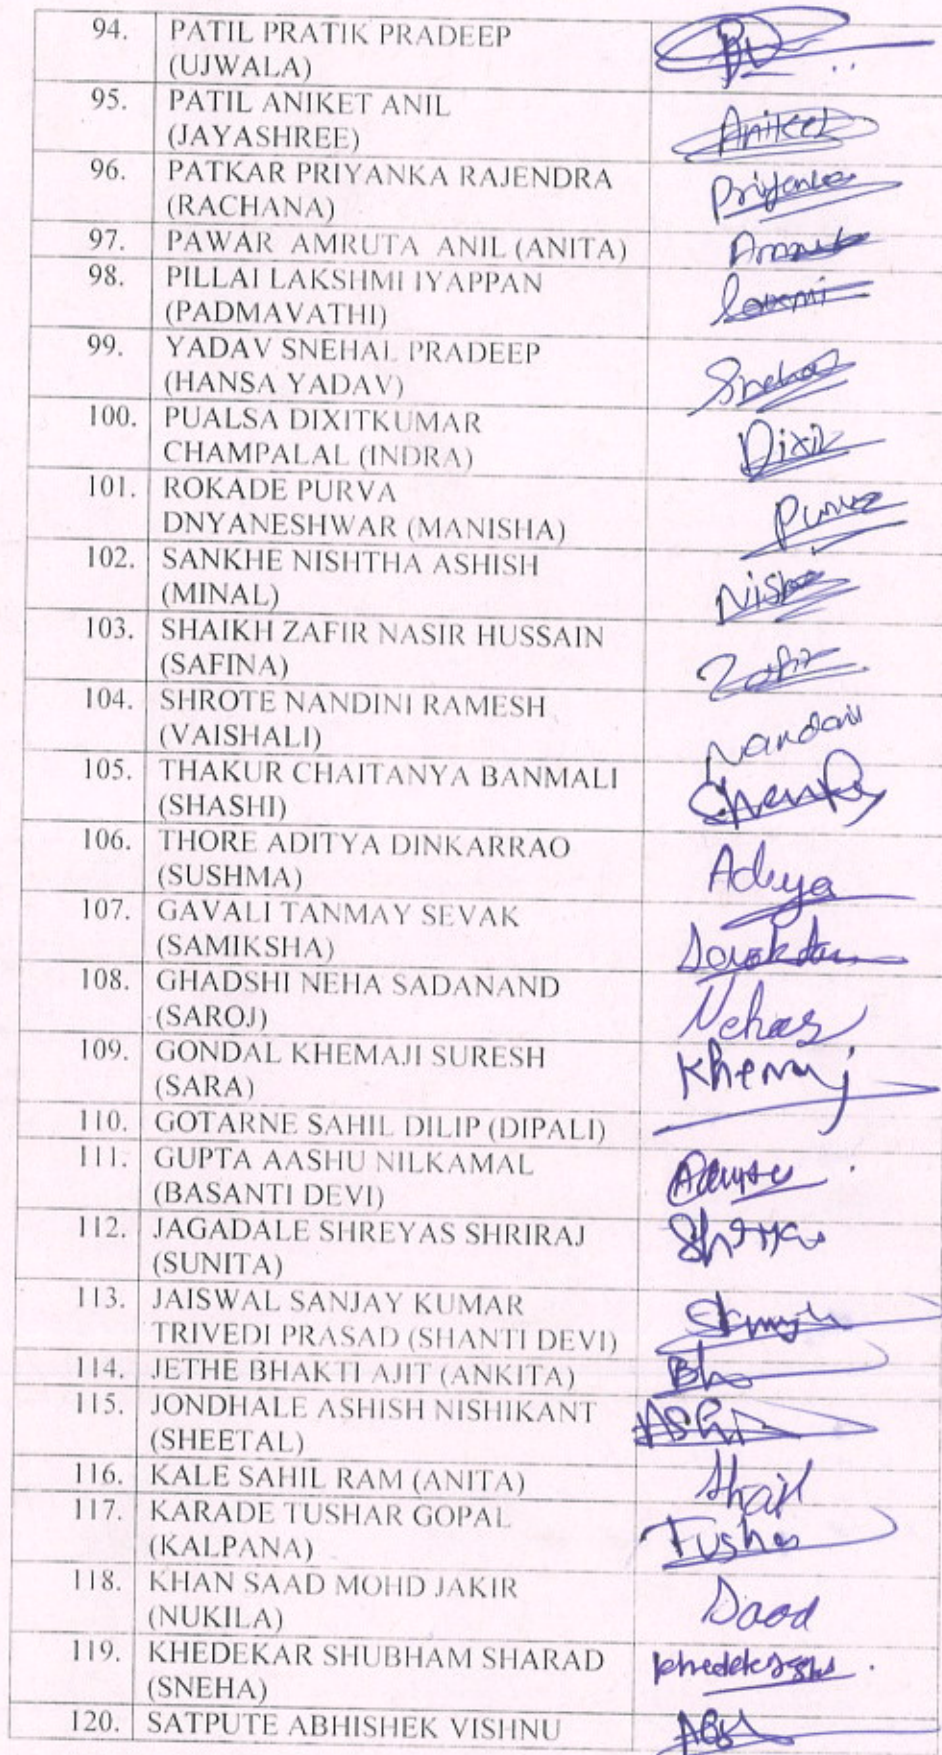 94. PATIL PRATIK PRADEEP
(UJWALA)
95. PATIL ANIKET ANIL
(JAYASHREE) Aniket
96. PATKAR PRIYANKA RAJENDRA
(RACHANA) Priyanka
97. PAWAR AMRUTA ANIL (ANITA)
98. PILLAI LAKSHMI IYAPPAN
(PADMAVATHI) Laxmi
99. YADAV SNEHAL PRADEEP
(HANSA YADAV) Snehal
100. PUALSA DIXITKUMAR
CHAMPALAL (INDRA) Dixit
101. ROKADE PURVA
DNYANESHWAR (MANISHA) Purva
102. SANKHE NISHTHA ASHISH
(MINAL)
103. SHAIKH ZAFIR NASIR HUSSAIN
(SAFINA) Zafir
104. SHROTE NANDINI RAMESH
(VAISHALI)
105. THAKUR CHAITANYA BANMALI
(SHASHI)
106. THORE ADITYA DINKARRAO
(SUSHMA)
107. GAVALI TANMAY SEVAK
(SAMIKSHA)
108. GHADSHI NEHA SADANAND
(SAROJ) Nehas
109. GONDAL KHEMAJI SURESH
(SARA) Khemraj
110. GOTARNE SAHIL DILIP (DIPALI)
111. GUPTA AASHU NILKAMAL
(BASANTI DEVI)
112. JAGADALE SHREYAS SHRIRAJ
(SUNITA)
113. JAISWAL SANJAY KUMAR
TRIVEDI PRASAD (SHANTI DEVI)
114. JETHE BHAKTI AJIT (ANKITA)
115. JONDHALE ASHISH NISHIKANT
(SHEETAL)
116. KALE SAHIL RAM (ANITA)
117. KARADE TUSHAR GOPAL
(KALPANA) Tushar
118. KHAN SAAD MOHD JAKIR
(NUKILA) Saad
119. KHEDEKAR SHUBHAM SHARAD
(SNEHA)
120. SATPUTE ABHISHEK VISHNU